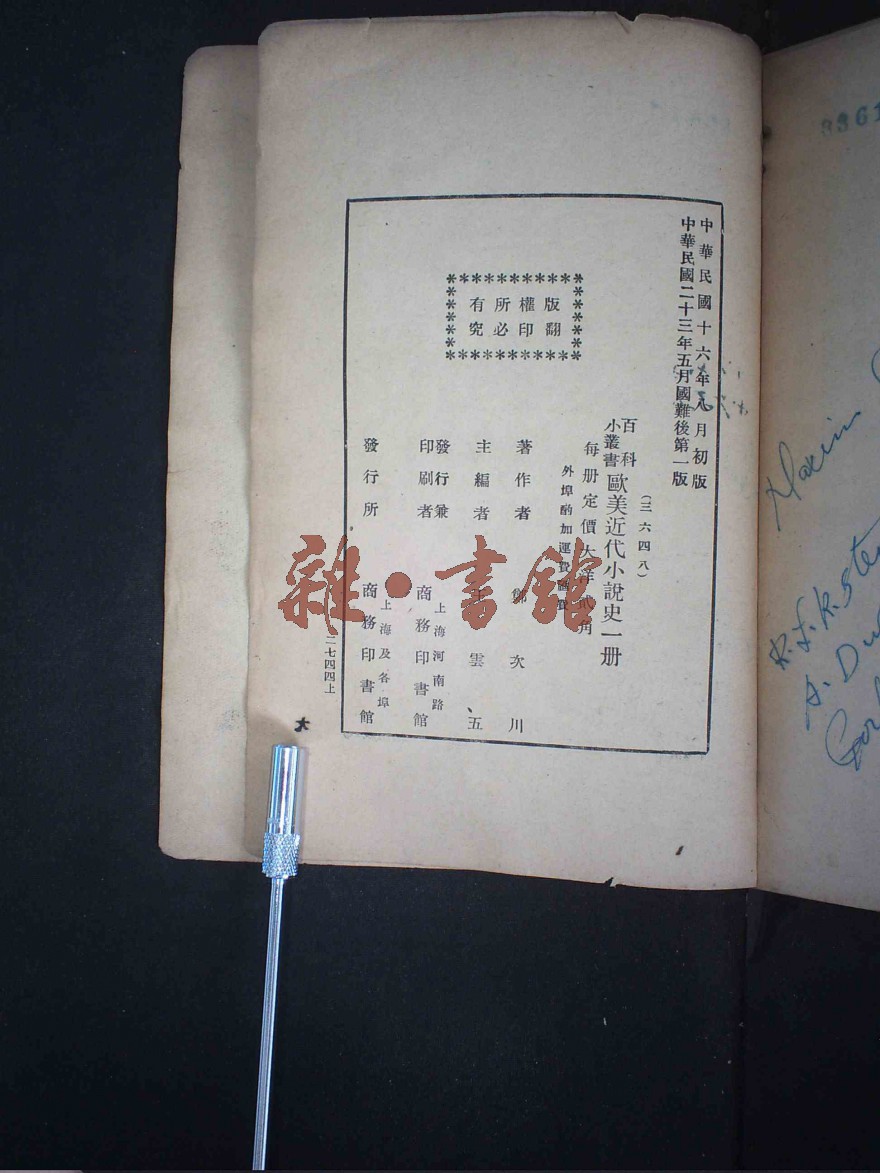 中華民國十六年八月初版
中華民國二十三年五月國難後第一版
(三六四八)
百科小叢書 歐美近代小說史一册
每册定價大洋貳角
外埠酌加運費匯費
版權所有
翻印必究
著作者 鄭次川
主編者 王雲五
發行兼印刷者 上海河南路 商務印書館
發行所 上海及各埠 商務印書館
二七四四上
雜·書館
3361
Maxim
A. Du